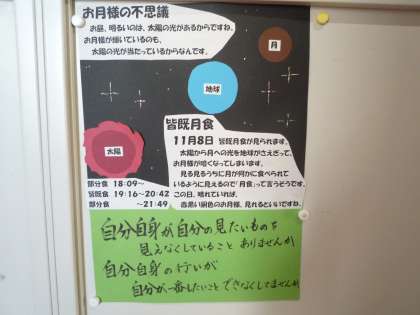 お月様の不思議
お昼、明るいのは、太陽の光があるからですね。
お月様が輝いているのも、
太陽の光が当たっているからなんです。
月
地球
太陽
皆既月食
11月8日 皆既月食が見られます。
太陽から月への光を地球がさえぎって、
お月様が暗くなってしまいます。
見る見るうちに月が何かに食べられて
いるように見えるので「月食」って言うそうです。
この日、晴れていれば、
赤黒い銅色のお月様、見れるといいですね。
部分食 18:09～
皆既食 19:16～20:42
部分食 ～21:49
自分自身が自分の見たいものを
見えなくしていること ありませんか
自分自身の行いが
自分が一番したいこと できなくしてませんか